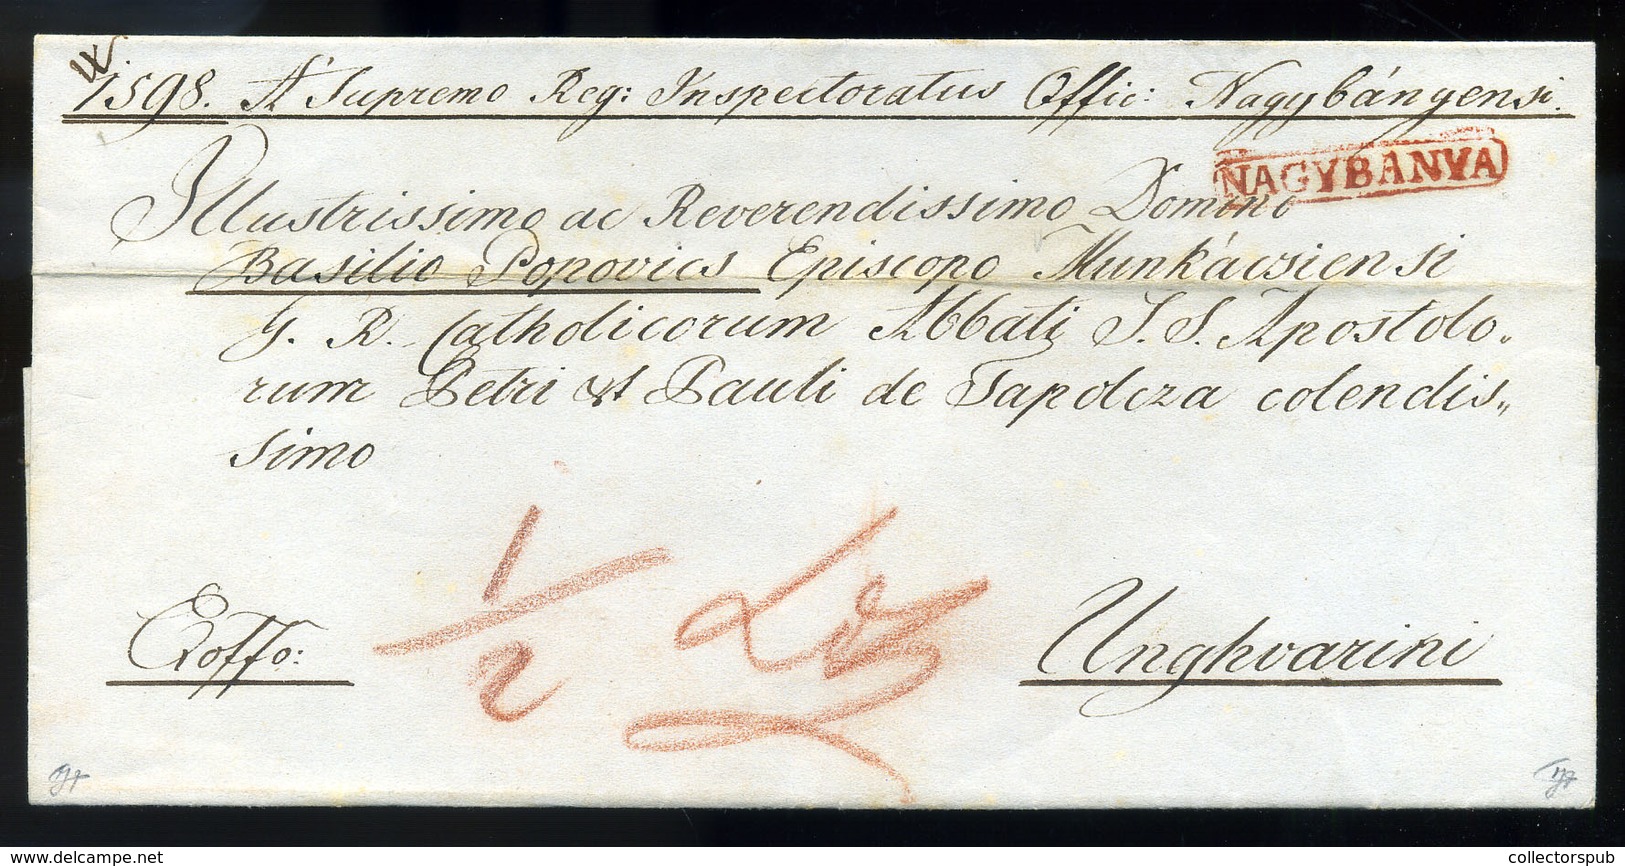 1598. A Supremo Reg: Inspectoratus Offic: Nagybányensi.
NAGYBANYA
Illustrissimo ac Reverendissimo Domino
Basilio Popovics Episcopo Munkácsiensi
G. R. Catholicorum Abbati S. S. Apostolo„
rum Petri et Pauli de Tapolcza colendis„
simo
Exoffo:
1/2
Unghvarini
collectorspub
www.delcampe.net